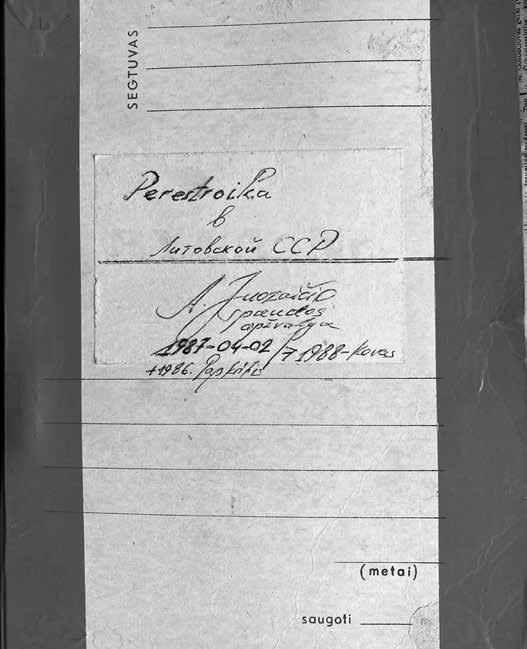 SEGTUVAS
Perestroika
в
Литовской ССР
A. Juozaičio
spaudos
apžvalga
1987-04-02 / 1988-Kovas
+1986.
(metai)
saugoti